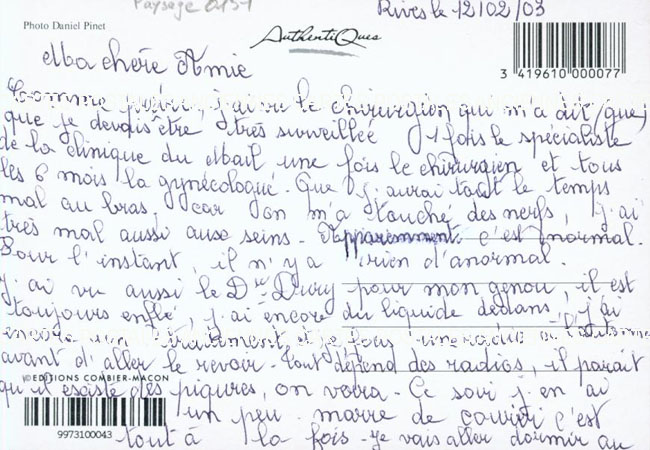 Paysage 0151
Rives le 12/02/03
Photo Daniel Pinet
AuthentiQues
3 419610 000077
Ma chère Amie
Comme prévu, j'ai vu le chirurgien qui m'a dit (que)
que je devais être très surveillée 1 fois le spécialiste
de la clinique du Mail une fois le chirurgien et tous
les 6 mois la gynécologue. Que j'aurai tout le temps
mal au bras, car on m'a touché des nerfs, j'ai
très mal aussi aux seins. Apparemment c'est normal.
Pour l'instant, il n'y a rien d'anormal.
J'ai vu aussi le Dr Dury pour mon genou, il est
toujours enflé, j'ai encore du liquide dedans, j'ai
encore un traitement et je
avant d'aller le revoir. Tout dépend des radios, il parait
qu'il esciste des piqures, on verra. Ce soir j'en ai
©EDITIONS COMBIER-MACON
un peu marre de courir c'est
9973100043
tout à la fois. Je vais aller dormir au